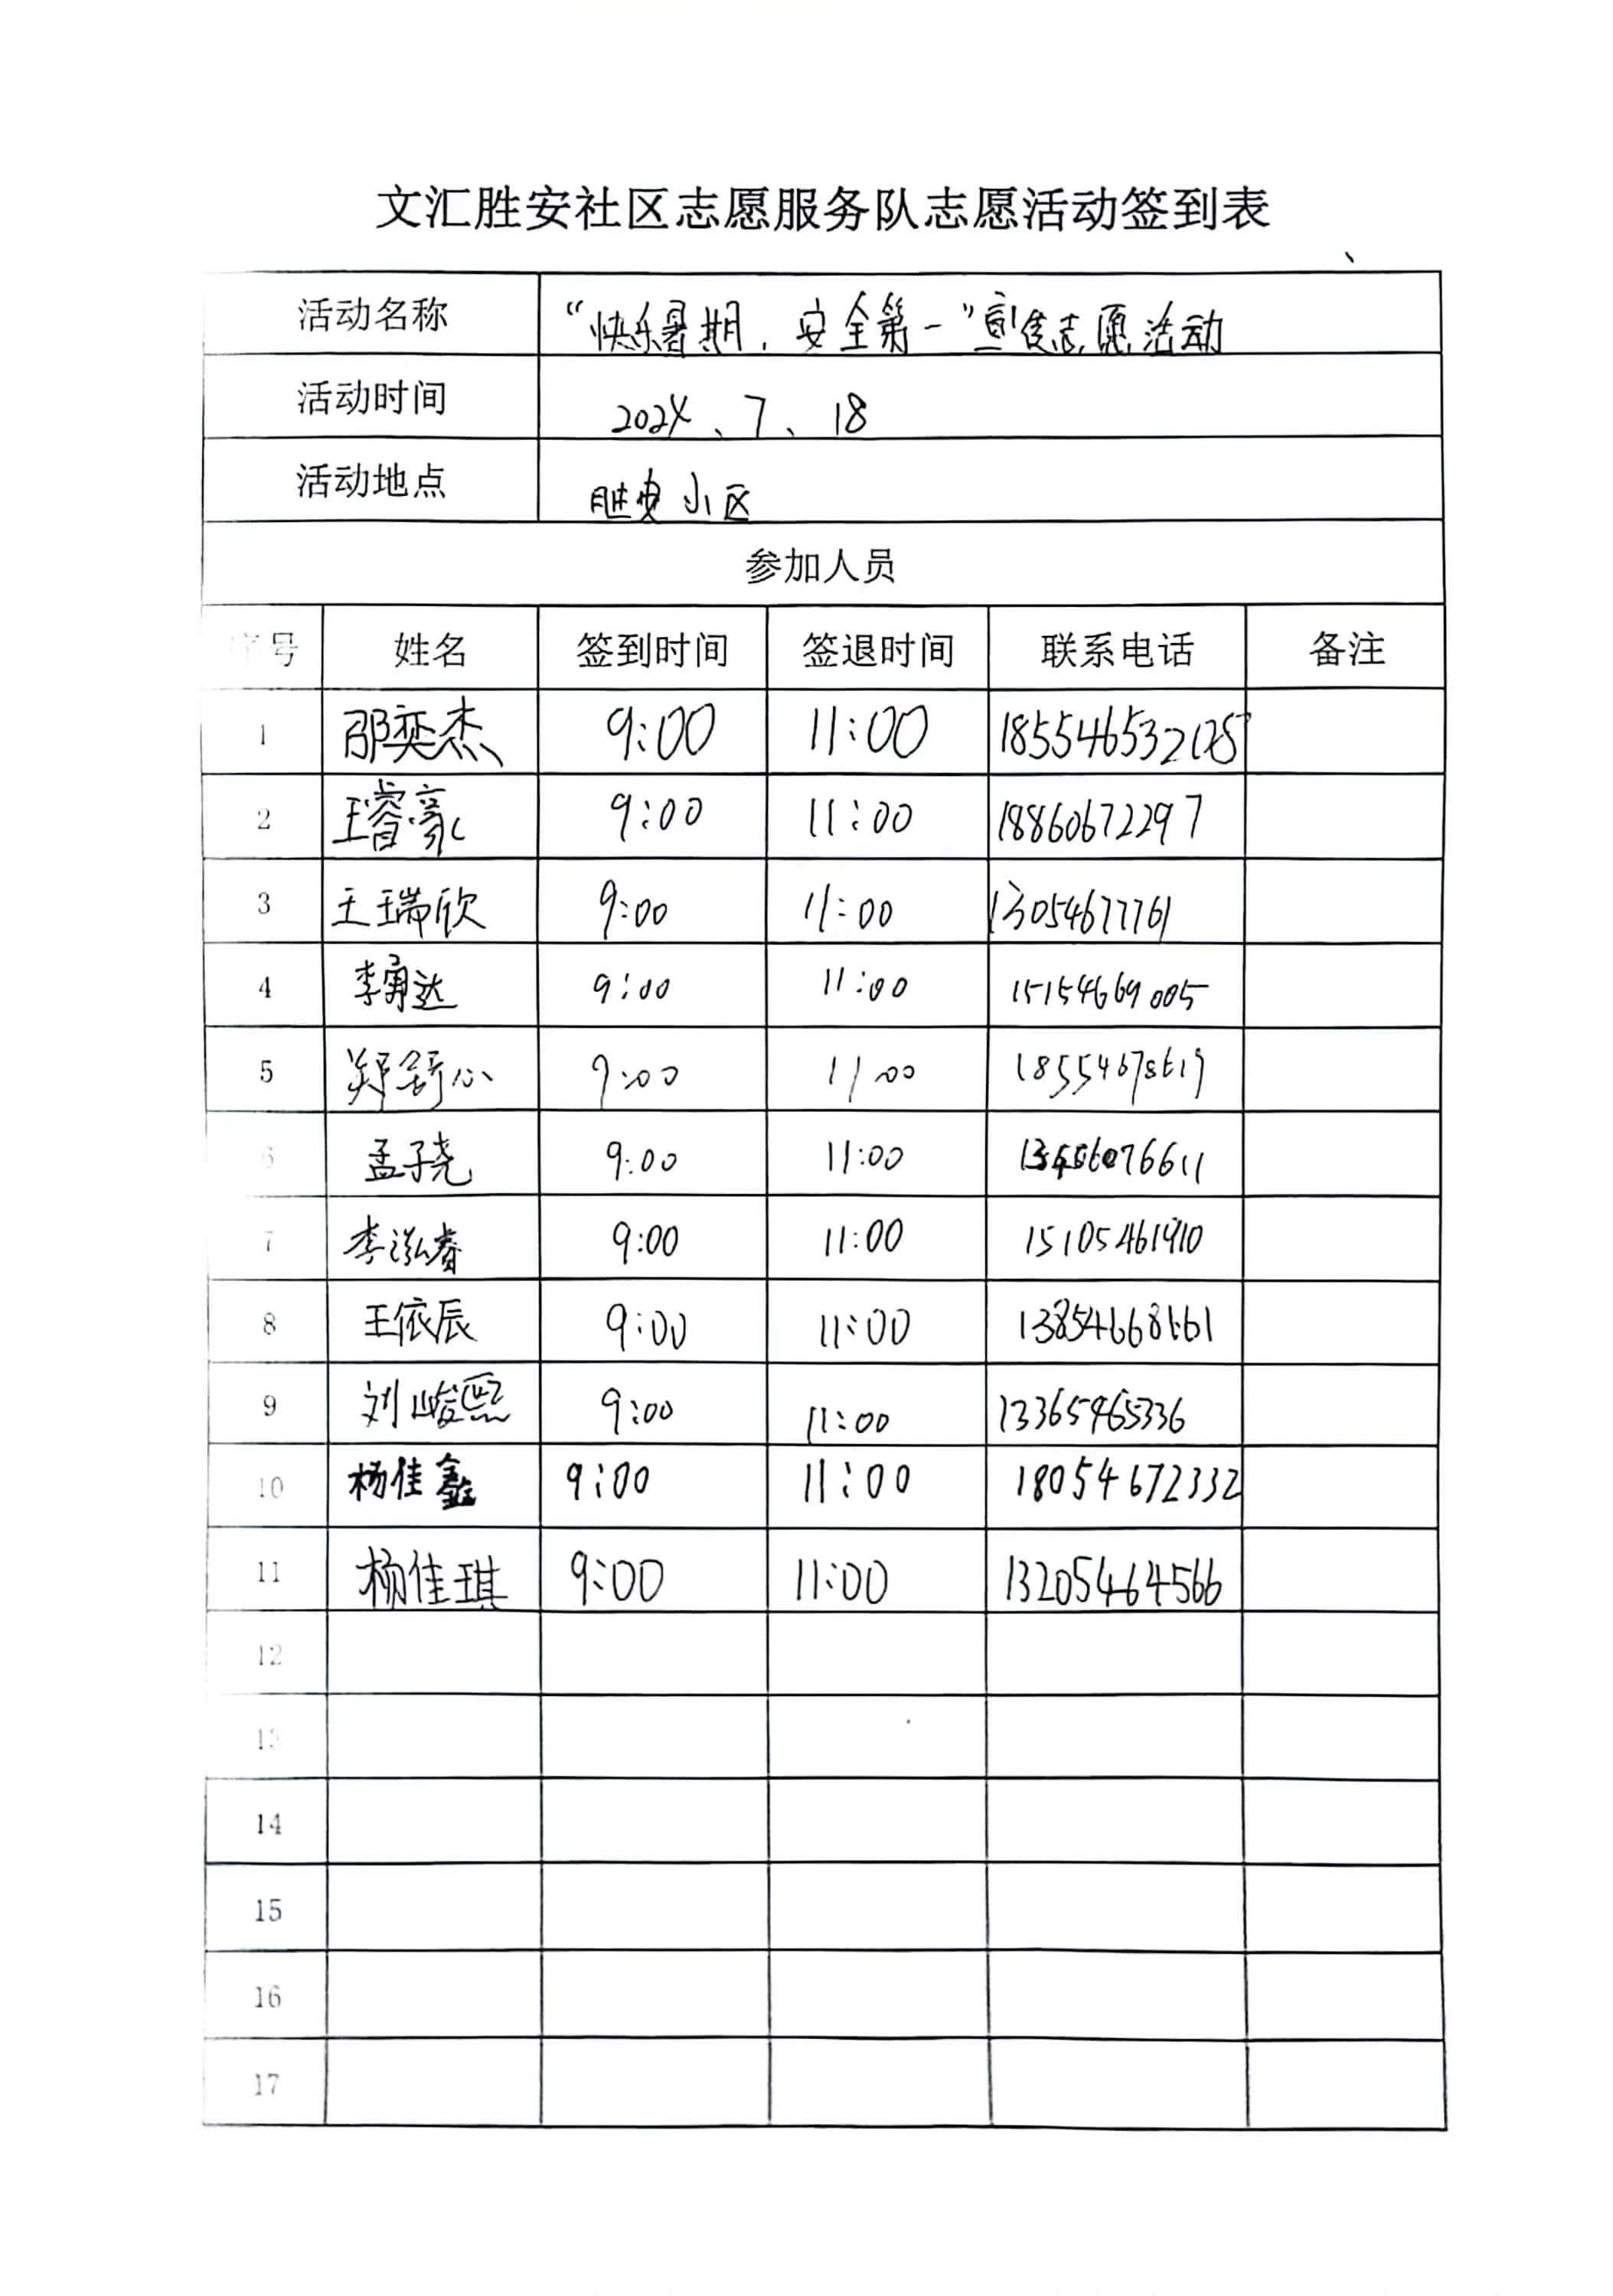 文汇胜安社区志愿服务队志愿活动签到表
活动名称 “快乐暑期，安全第一”宣传志愿活动
活动时间 2024、7、18
活动地点 胜安小区
参加人员
序号 姓名 签到时间 签退时间 联系电话 备注
1 邵奕杰 9:00 11:00
2 王睿豪 9:00 11:00 18860672297
3 王瑞欣 9:00 11:00 13054677761
4 李甬达 9:00 11:00 15154669005
5 郑舒心 9:00 11:00
6 孟子尧 9:00 11:00
7 李泓睿 9:00 11:00 15105461910
8 王依辰 9:00 11:00
9 刘峻熙 9:00 11:00 13365465336
10 杨佳鑫 9:00 11:00 18054672332
11 杨佳琪 9:00 11:00 13205464566
12
13
14
15
16
17